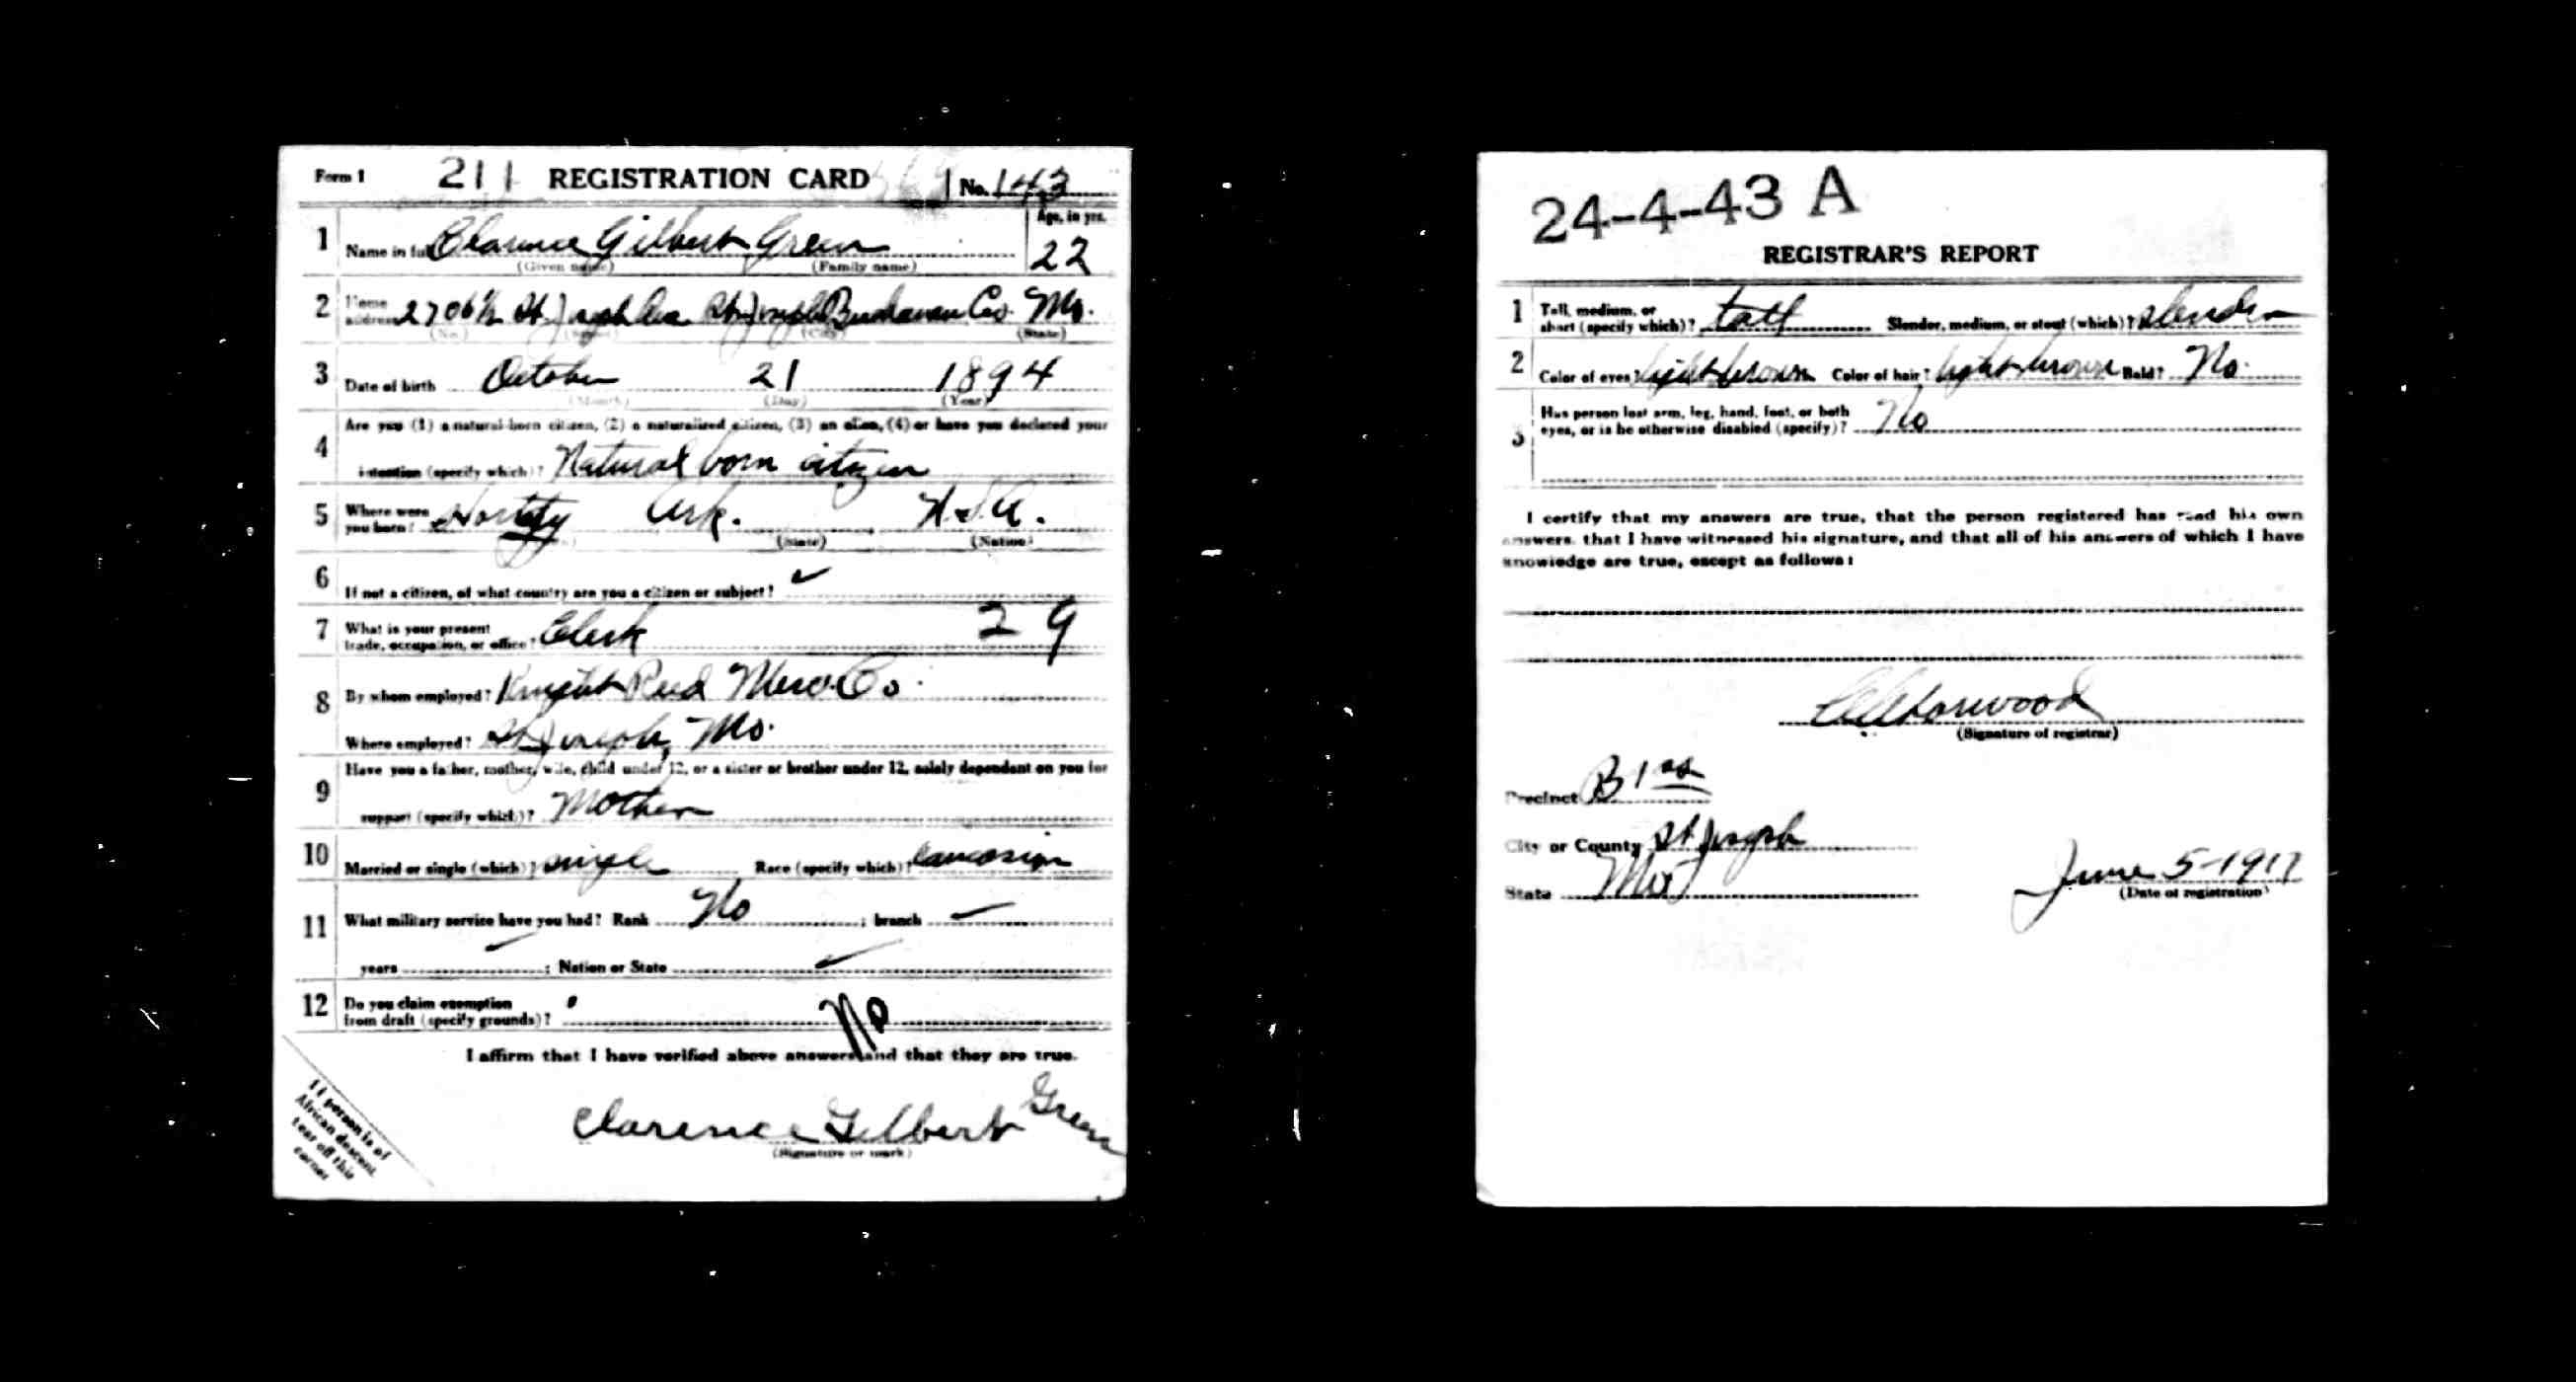 Form 1 211 REGISTRATION CARD No. 143
1 Name in full Clarence Gilbert Green Age, in yrs. 22
(Given name) (Family name)
2 Home address 2706½ St. Joseph Ave St. Joseph Buchanan Co. Mo.
(No.) (Street) (City) (State)
3 Date of birth October 21 1894
(Month) (Day) (Year)
4 Are you (1) a natural-born citizen, (2) a naturalized citizen, (3) an alien, (4) or have you declared your
intention (specify which)? Natural born citizen
5 Where were you born? Ark. U.S.A.
(State) (Nation)
6 If not a citizen, of what country are you a citizen or subject? ✓
7 What is your present trade, occupation, or office? Clerk 29
8 By whom employed? Knight Reed Merc. Co.
Where employed? St. Joseph, Mo.
9 Have you a father, mother, wife, child under 12, or a sister or brother under 12, solely dependent on you for
support (specify which)? Mother
10 Married or single (which)? single Race (specify which)? Caucasian
11 What military service have you had? Rank No ; branch ✓
years ✓ ; Nation or State ✓
12 Do you claim exemption from draft (specify grounds)? No
I affirm that I have verified above answers and that they are true.
Clarence Gilbert Green
(Signature or mark)
If person is of
African descent
tear off this
corner
24-4-43 A
REGISTRAR'S REPORT
1 Tall, medium, or short (specify which)? tall Slender, medium, or stout (which)? slender
2 Color of eyes? light brown Color of hair? light brown Bald? No.
3 Has person lost arm, leg, hand, foot, or both
eyes, or is he otherwise disabled (specify)? No
I certify that my answers are true, that the person registered has read his own
answers, that I have witnessed his signature, and that all of his answers of which I have
knowledge are true, except as follows:
(Signature of registrar)
Precinct B 1
City or County St. Joseph
State Mo
June 5-1917
(Date of registration)